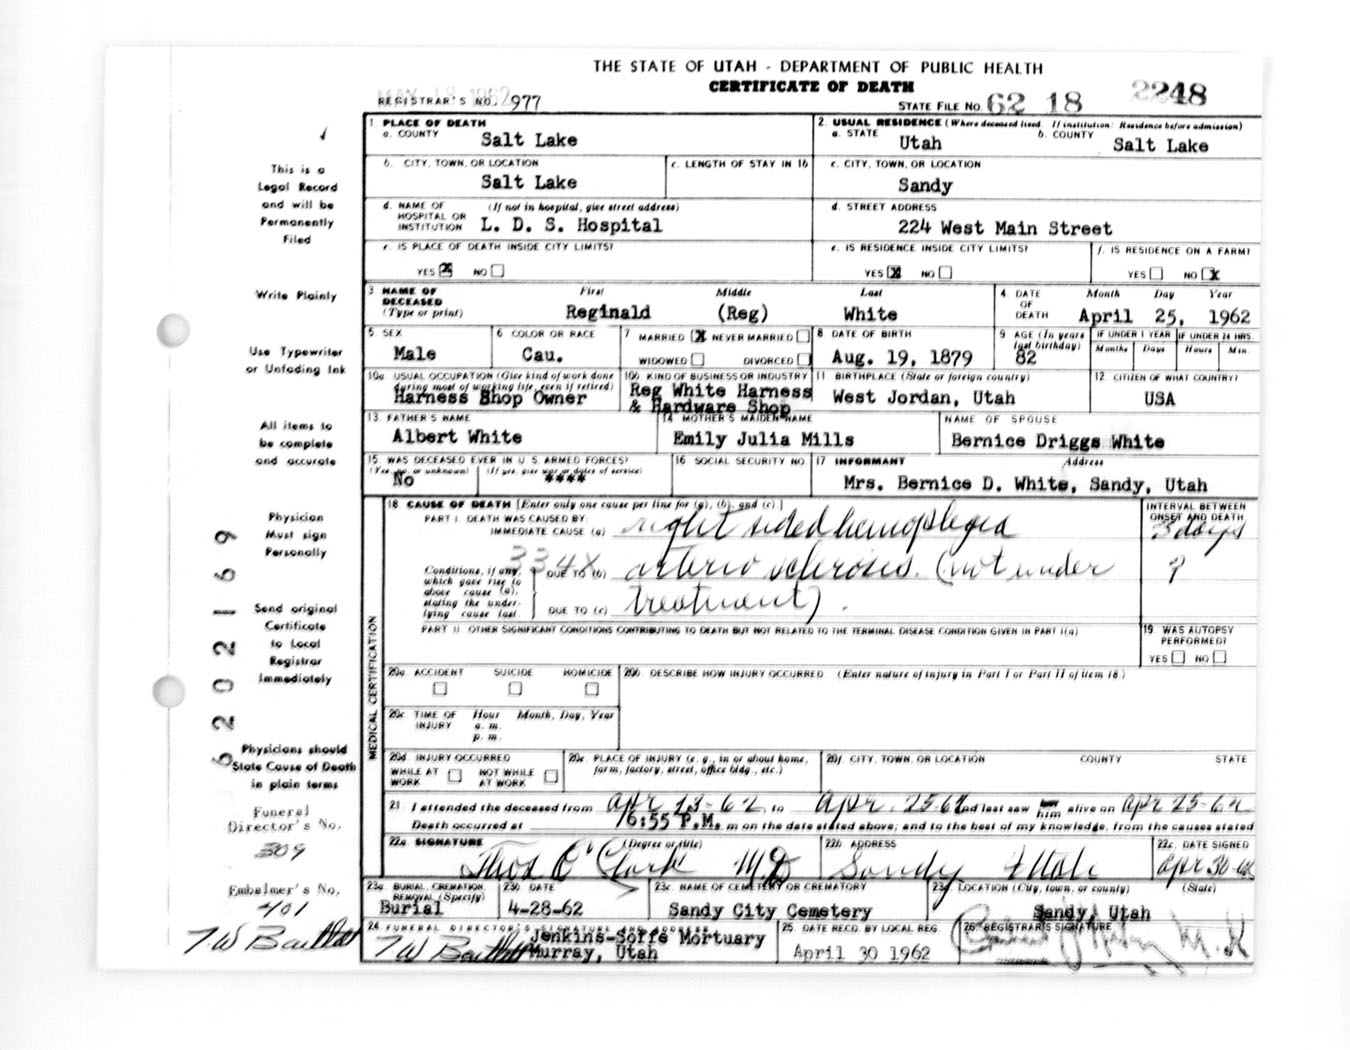 THE STATE OF UTAH - DEPARTMENT OF PUBLIC HEALTH
CERTIFICATE OF DEATH
MAY 18 1962
REGISTRAR'S NO. 977
STATE FILE NO. 62 18 2248
This is a
Legal Record
and will be
Permanently
Filed
Write Plainly
Use Typewriter
or Unfading Ink
All items to
be complete
and accurate
Physician
Must sign
Personally
Send original
Certificate
to Local
Registrar
Immediately
Physicians should
State Cause of Death
in plain terms
Funeral
Director's No.
309
Embalmer's No.
401
T.W Bartlett
6202169
1 PLACE OF DEATH
a. COUNTY Salt Lake
2. USUAL RESIDENCE (Where deceased lived. If institution: Residence before admission)
a. STATE Utah b. COUNTY Salt Lake
b. CITY, TOWN, OR LOCATION Salt Lake
c. LENGTH OF STAY IN 1b
c. CITY, TOWN, OR LOCATION Sandy
d. NAME OF HOSPITAL OR INSTITUTION (If not in hospital, give street address) L. D. S. Hospital
d. STREET ADDRESS 224 West Main Street
e. IS PLACE OF DEATH INSIDE CITY LIMITS?
YES X NO
e. IS RESIDENCE INSIDE CITY LIMITS?
YES X NO
f. IS RESIDENCE ON A FARM?
YES NO X
3 NAME OF DECEASED (Type or print) First Middle Last
Reginald (Reg) White
4 DATE OF DEATH Month Day Year
April 25, 1962
5 SEX Male
6 COLOR OR RACE Cau.
7 MARRIED X NEVER MARRIED
WIDOWED DIVORCED
8 DATE OF BIRTH Aug. 19, 1879
9 AGE (In years last birthday) 82
IF UNDER 1 YEAR Months Days
IF UNDER 24 HRS. Hours Min.
10a USUAL OCCUPATION (Give kind of work done during most of working life, even if retired)
Harness Shop Owner
10b KIND OF BUSINESS OR INDUSTRY
Reg White Harness
& Hardware Shop
11 BIRTHPLACE (State or foreign country)
West Jordan, Utah
12 CITIZEN OF WHAT COUNTRY?
USA
13. FATHER'S NAME Albert White
14 MOTHER'S MAIDEN NAME Emily Julia Mills
NAME OF SPOUSE Bernice Driggs White
15 WAS DECEASED EVER IN U S ARMED FORCES?
(Yes, no, or unknown) No (If yes, give war or dates of service) ****
16 SOCIAL SECURITY NO
17 INFORMANT Address
Mrs. Bernice D. White, Sandy, Utah
MEDICAL CERTIFICATION
18 CAUSE OF DEATH [Enter only one cause per line for (a), (b), and (c).]
PART I. DEATH WAS CAUSED BY
IMMEDIATE CAUSE (a) right sided hemoplegia
INTERVAL BETWEEN ONSET AND DEATH
3 days
334X
Conditions, if any, which gave rise to above cause (a), stating the underlying cause last.
DUE TO (b) arterio sclerosis. (not under
?
DUE TO (c) treatment).
PART II OTHER SIGNIFICANT CONDITIONS CONTRIBUTING TO DEATH BUT NOT RELATED TO THE TERMINAL DISEASE CONDITION GIVEN IN PART I(a)
19. WAS AUTOPSY PERFORMED?
YES NO
20a ACCIDENT SUICIDE HOMICIDE
20b DESCRIBE HOW INJURY OCCURRED (Enter nature of injury in Part I or Part II of item 18.)
20c TIME OF INJURY Hour Month, Day, Year
a. m.
p. m.
20d INJURY OCCURRED
WHILE AT WORK NOT WHILE AT WORK
20e PLACE OF INJURY (e. g., in or about home, farm, factory, street, office bldg., etc.)
20f CITY, TOWN, OR LOCATION COUNTY STATE
21 I attended the deceased from Apr 13-62, to Apr. 25 62 and last saw him alive on Apr 25-62
Death occurred at 6:55 P.M. m on the date stated above; and to the best of my knowledge, from the causes stated
22a SIGNATURE (Degree or title) Thos C Clark MD
22b ADDRESS Sandy Utah
22c. DATE SIGNED Apr 30-62
23a BURIAL, CREMATION, REMOVAL (Specify) Burial
23b DATE 4-28-62
23c NAME OF CEMETERY OR CREMATORY Sandy City Cemetery
23d LOCATION (City, town, or county) (State)
Sandy, Utah
24 FUNERAL DIRECTOR'S SIGNATURE AND ADDRESS
T W Bartlett Jenkins-Soffe Mortuary
Murray, Utah
25. DATE RECD. BY LOCAL REG.
April 30 1962
26 REGISTRAR'S SIGNATURE